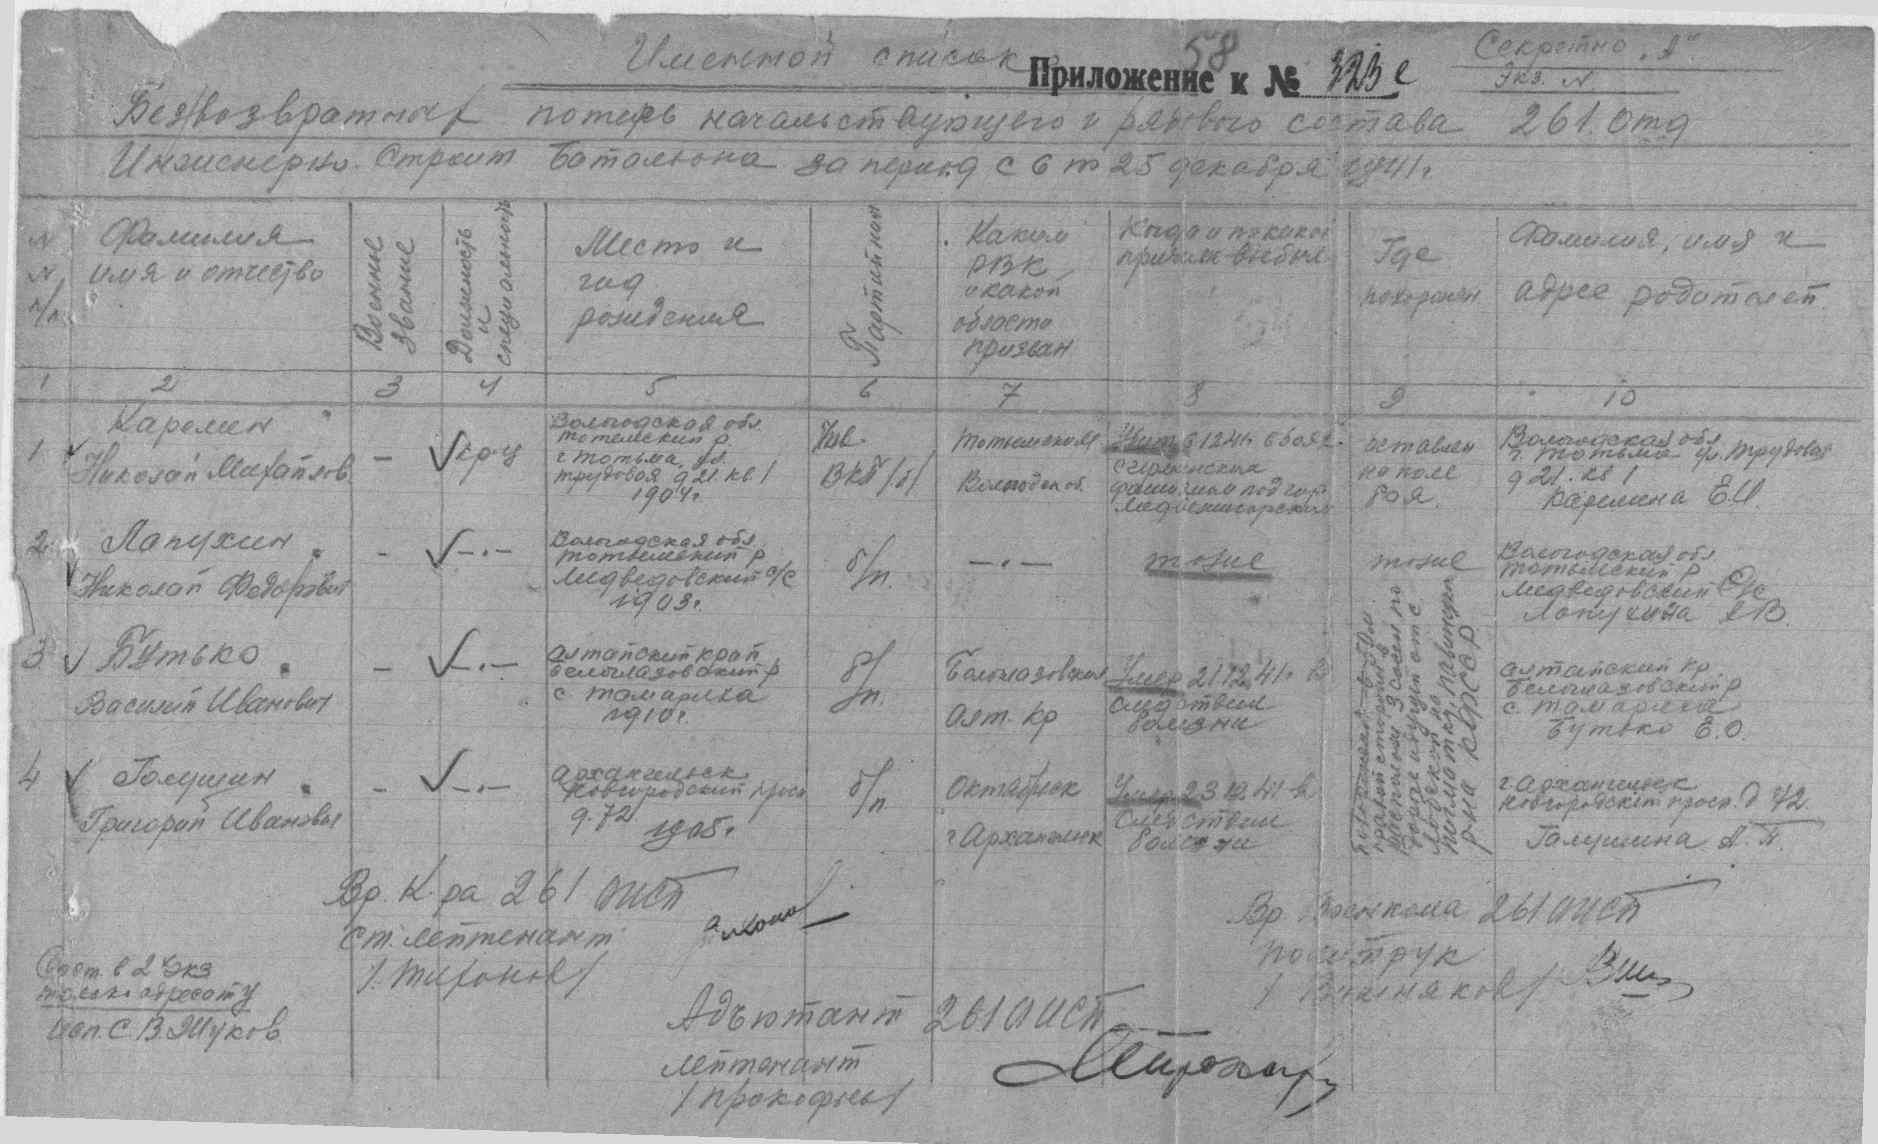 58
Именной список
Приложение к № 323 с
Секретно "А"
Экз. N
Безвозвратных потерь начальствующего и рядового состава 261 отд
Инженерн. Строит Батальона за период с 6 по 25 декабря 1941г.
N N п/п
Фамилия имя и отчество
Военные звание
Должность и специальность
Место и год рождения
Партийная
Каким РВК и какой области призван
Когда и по какой причине выбыл
Где похоронен
Фамилия, имя и адрес родителей
1 2 3 4 5 6 7 8 9 10
1
Карелин
Николай Михайлов
–
кр-ц
Вологодская обл.
Тотемский р.
г. Тотьма, ул.
Трудовая д 21. кв 1
1904г.
ВКП/б/
Тотьменский
Вологодск об.
6 12 41г. в бою с
финскими
под гор.
Медвежигорском
оставлен
на поле
боя.
Вологодская обл
г. Тотьма ул. Трудовая
д 21. кв 1
Карелина Е.И.
2
Лапухин
Николай Федорович
-
–.–
Вологодская обл.
Тотьменский р
Медведовский с/с
1903г.
б/п.
–.–
тоже
тоже
Вологодская обл
Тотьмский р
Медведовский с/с
Лопухина
3
Бутько
Василий Иванович
–
–.–
Алтайский край
Белоглазовский р
с. Тамариха
1910г.
б/п.
Белоглазовский
Алт. кр
Умер 21 12 41г. в
следствии
болезни
Алтайский кр
Белоглазовский р
с. Тамариха
Бутько Е.О.
4
Галушин
Григорий Иванович
-
–.–
Архангельск
Новгородский просп
д. 72
1905г.
б/п
Октябрск
г Архангельск
Умер 23 12 41 в
следствии
болезни
г Архангельск
Новгородский просп. д 72.
Галушина А. П.
Вр. К-ра 261 ОИСБ
Ст. лейтенант
/Тихонов/
Вр. Военкома 261 ОИСБ
Политрук
/Вишняков/
Сост. в 2 экз
только адресату
исп. С. В. Жуков
Адъютант 261 ОИСБ
лейтенант
/Прокофьев/